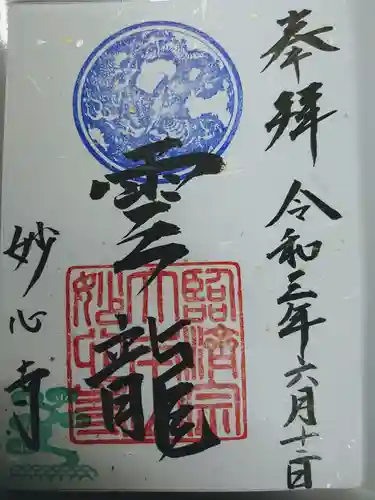 奉拝
令和三年六月十二日
雲龍
臨済宗
大本山
妙心寺
妙心寺